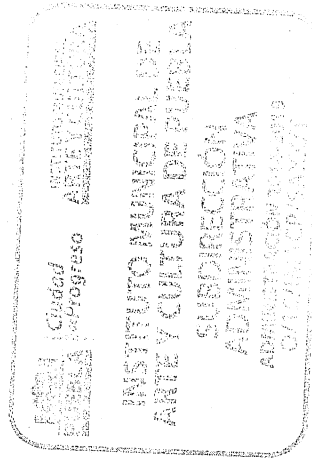 PUEBLA
Ciudad
de Progreso
ARTE Y CULTURA
INSTITUTO MUNICIPAL DE
ARTE Y CULTURA DE PUEBLA
SUBDIRECCIÓN
ADMINISTRATIVA